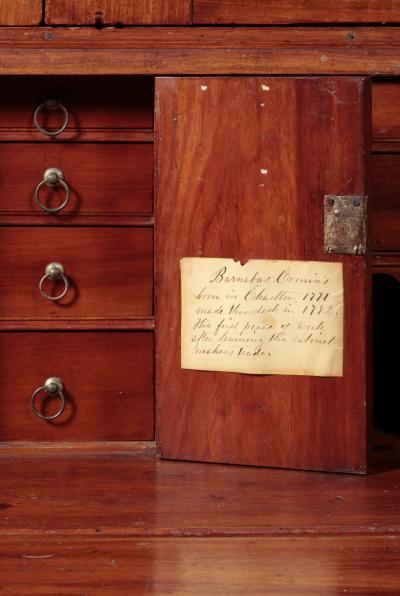 Barnabas Comins
born in Charlton, 1771
made this desk in 1792.
His first piece of work
after learning the cabinet
makers trade.